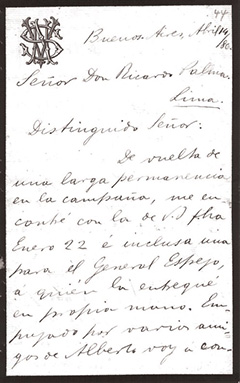 44
Buenos Aires, Abril 14/80.
Señor Don Ricardo Palma.
Lima.
Distinguido Señor:
De vuelta de
una larga permanencia
en la campaña, me en-
contré con la de V. S fha
Enero 22 é inclusa una
para el General Espejo,
á quién la entregué
en propia mano. Em-
pujado por varios ami-
gos de Alberto voy a com-